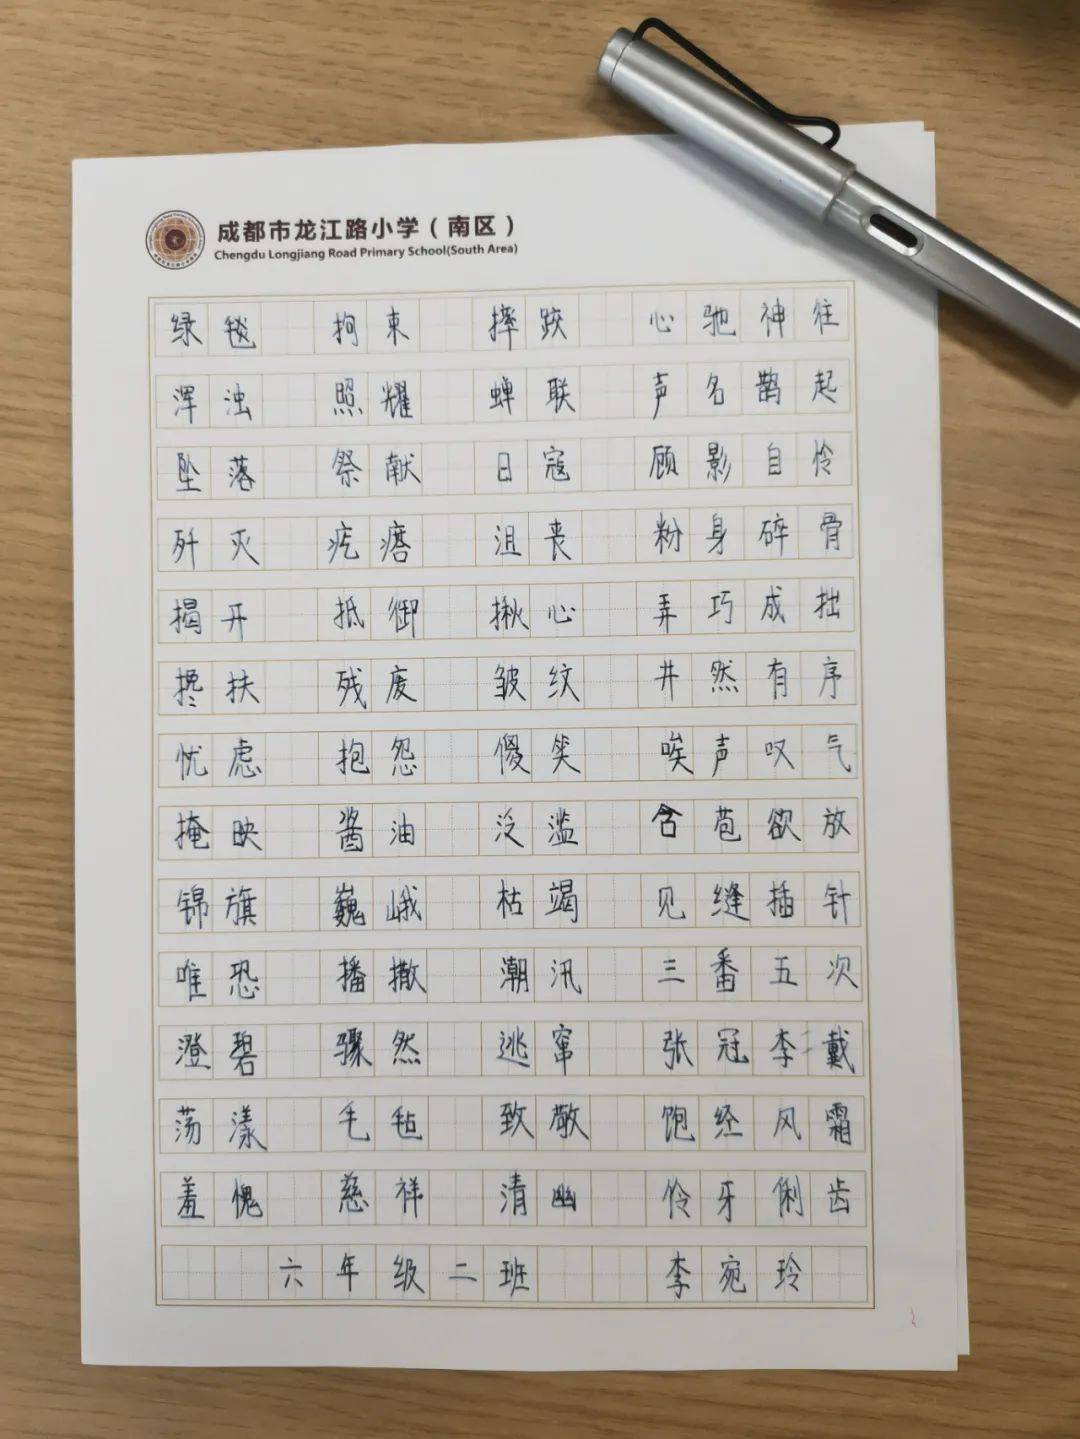 成都市龙江路小学（南区）
Chengdu Longjiang Road Primary School(South Area)
绿毯 拘束 摔跤 心驰神往
浑浊 照耀 蝉联 声名鹊起
坠落 祭献 日寇 顾影自怜
歼灭 疙瘩 沮丧 粉身碎骨
揭开 抵御 揪心 弄巧成拙
搀扶 残废 皱纹 井然有序
忧虑 抱怨 傻笑 唉声叹气
掩映 酱油 泛滥 含苞欲放
锦旗 巍峨 枯竭 见缝插针
唯恐 播撒 潮汛 三番五次
澄碧 骤然 逃窜 张冠李戴
荡漾 毛毡 致敬 饱经风霜
羞愧 慈祥 清幽 伶牙俐齿
六年级二班 李宛玲